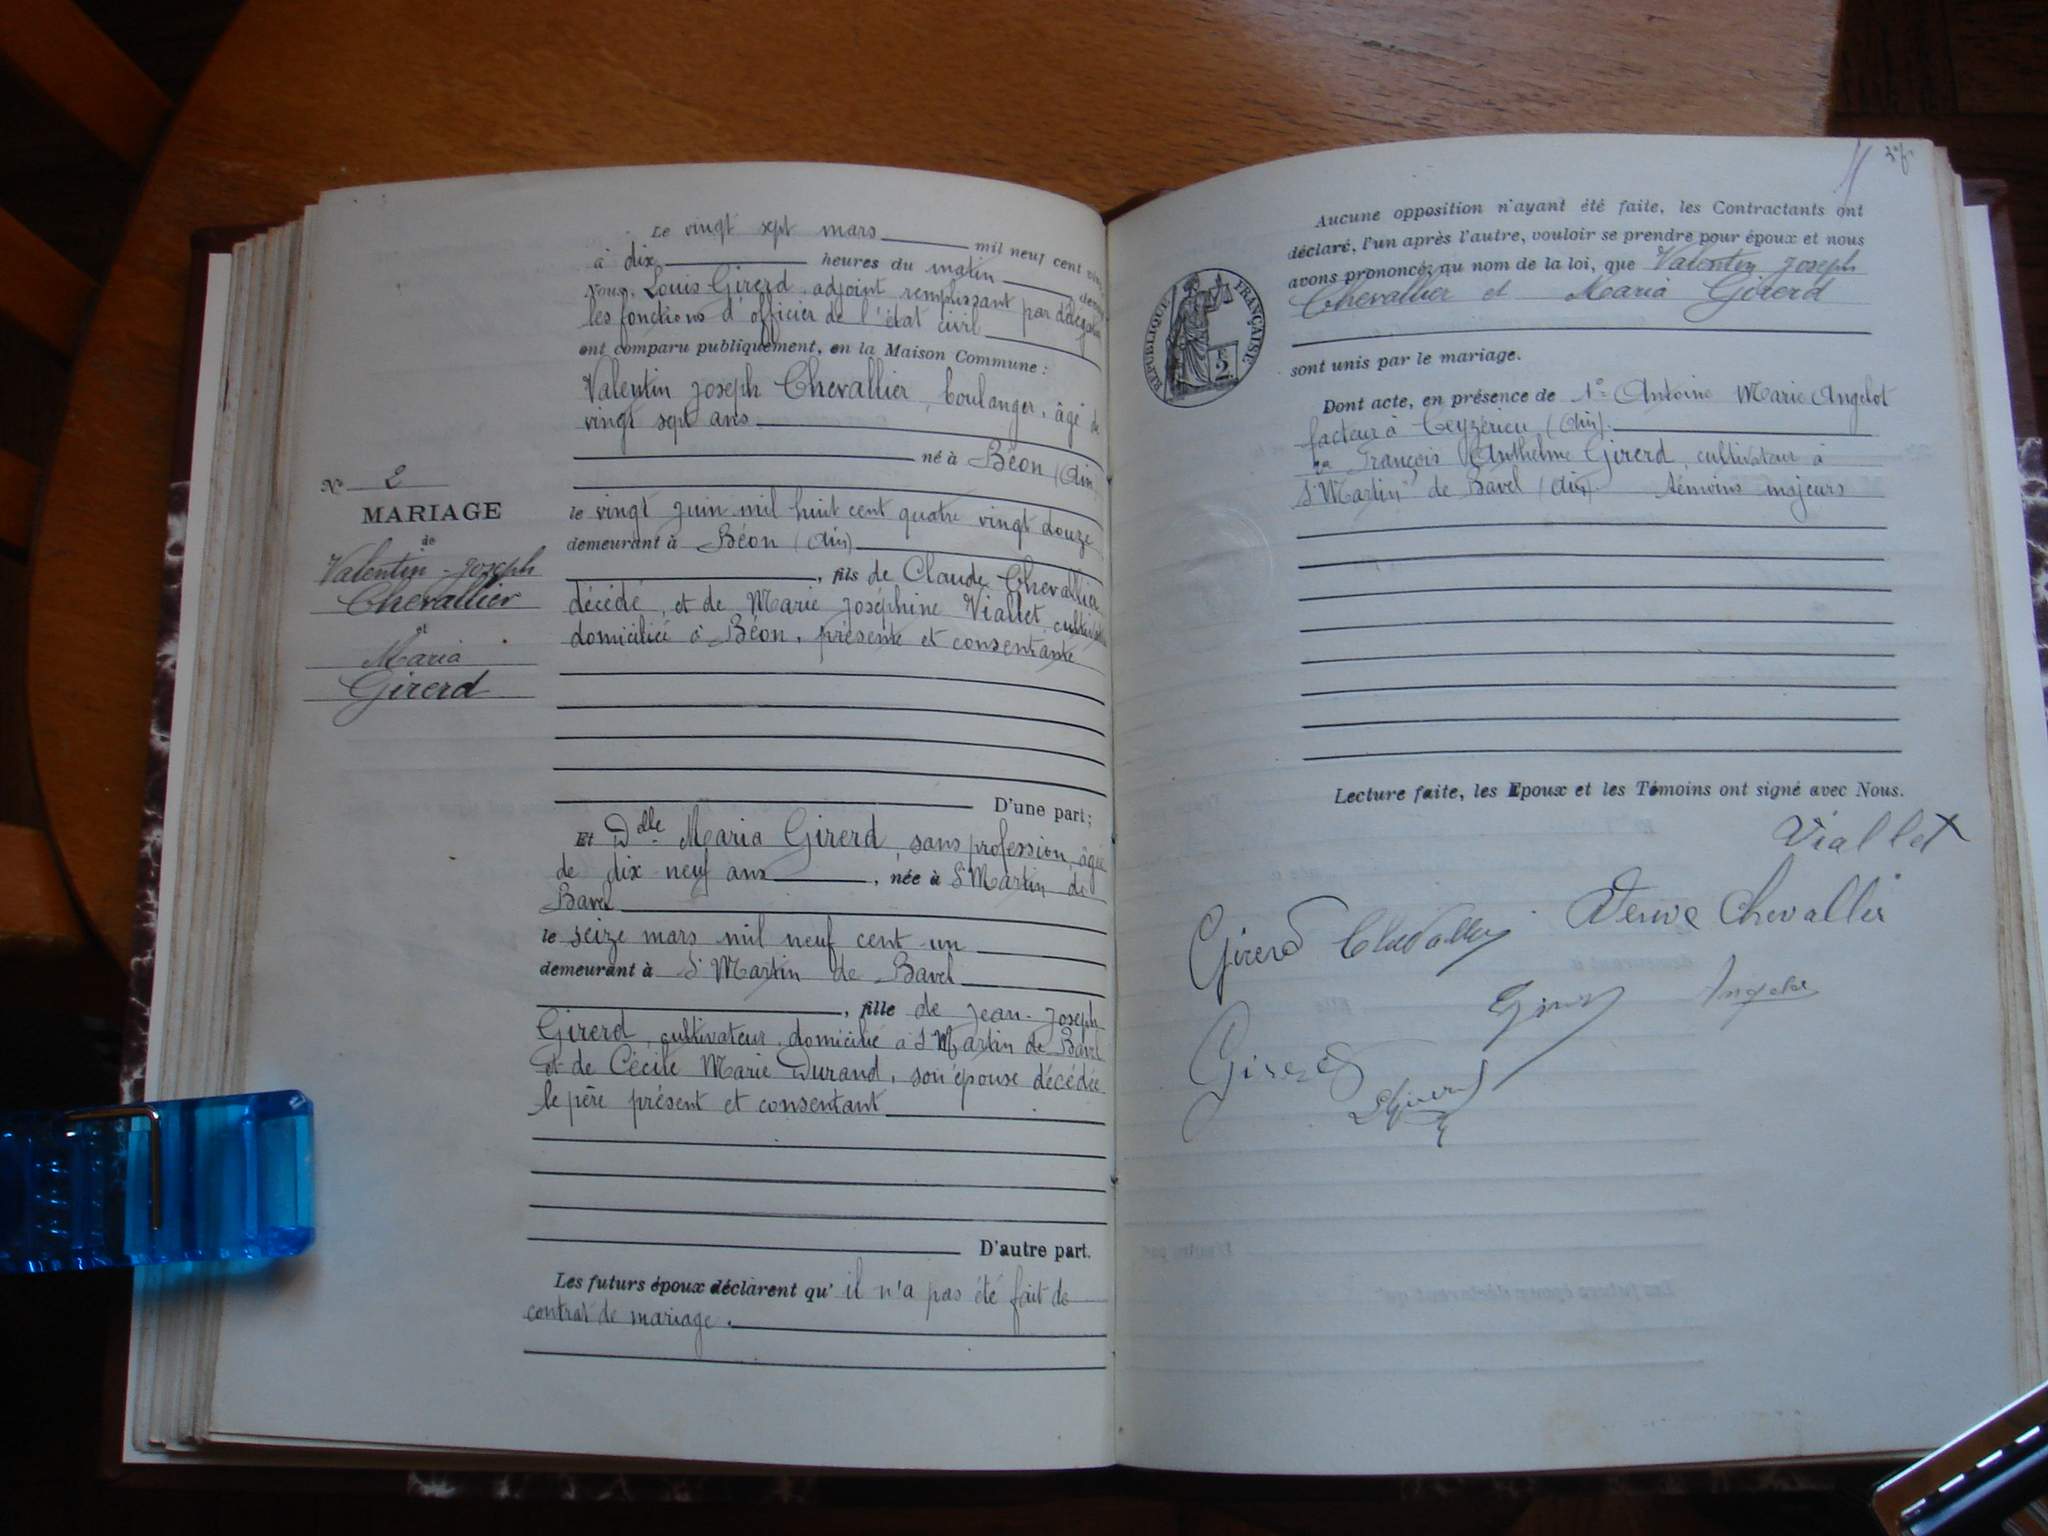 Le vingt sept mars mil neuf cent vingt
à dix heures du matin, devant
Nous, Louis Girerd, adjoint remplissant par délégation
les fonctions d'officier de l'état civil
ont comparu publiquement, en la Maison Commune :
Valentin Joseph Chevallier, boulanger, âgé de
vingt sept ans
né à Béon (Ain)
le vingt juin mil huit cent quatre vingt douze
demeurant à Béon (Ain)
, fils de Claude Chevallier
décédé, et de Marie Joséphine Viallet,
domiciliée à Béon, présente et consentante
D'une part;
Et Dlle Maria Girerd, sans profession, âgée
de dix neuf ans, née à St Martin de
Bavel
le seize mars mil neuf cent un
demeurant à St Martin de Bavel
, fille de Jean-Joseph
Girerd, cultivateur, domicilié à St Martin de Bavel
et de Cécile Marie Durand, son épouse décédée
le père présent et consentant
D'autre part.
Les futurs époux déclarent qu'il n'a pas été fait de
contrat de mariage.
No 2
MARIAGE
de
Valentin-Joseph
Chevallier
et
Maria
Girerd
Aucune opposition n'ayant été faite, les Contractants ont
déclaré, l'un après l'autre, vouloir se prendre pour époux et nous
avons prononcé, au nom de la loi, que Valentin Joseph
Chevallier et Maria Girerd
sont unis par le mariage.
Dont acte, en présence de 1o Antoine Marie Angelot
facteur à Ceyzérieu (Ain).
2o François Anthelme Girerd, cultivateur à
St Martin de Bavel (Ain). témoins majeurs
Lecture faite, les Epoux et les Témoins ont signé avec Nous.
Viallet
Veuve Chevallier
Girerd Chevallier
Angelot
Girerd
Girerd
LGirerd
RÉPUBLIQUE FRANÇAISE